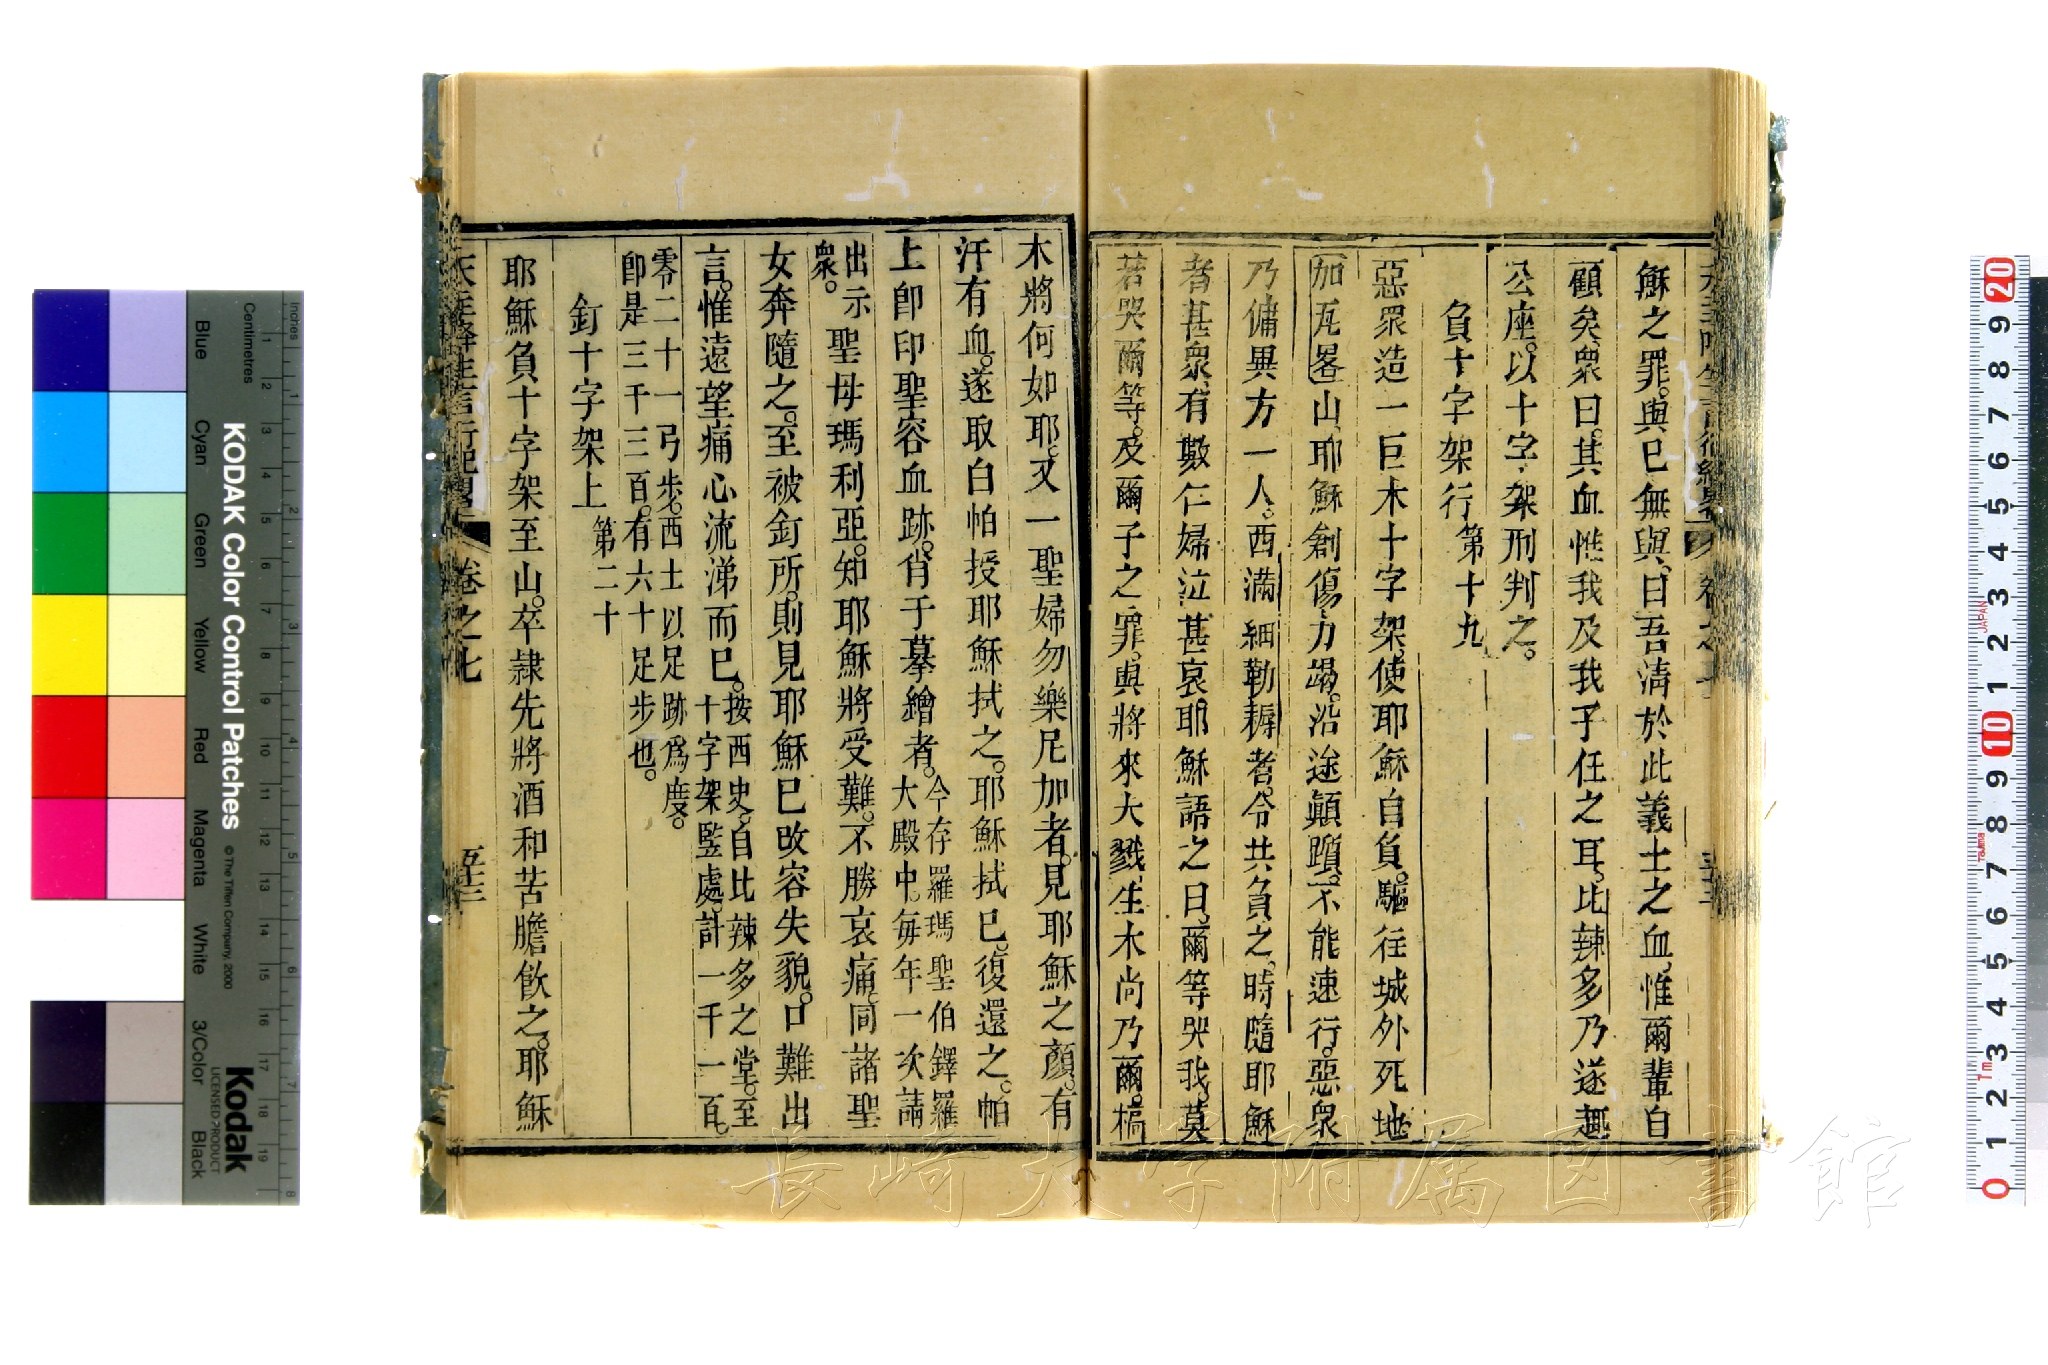 穌之罪。與已無與。曰吾淸於此義士之血。惟爾輩自
顧矣。衆曰。其血惟我及我子任之耳。比辣多乃遂趣
公座。以十字架刑判之。
負十字架行 第十九
惡眾造一巨木十字架。使耶穌自負。驅往城外死地
加瓦畧山。耶穌創傷力竭。沿途顛躓。不能速行。惡衆
乃傭異方一人。西滿細勒耨者。令共負之。時隨耶穌
者甚衆。有數仁婦泣甚哀。耶穌語之曰。爾等哭我。莫
若哭爾等。及爾子之罪。與將來大戮。生木尚乃爾。槁
木將何如耶。又一聖婦勿樂尼加者。見耶穌之顏。有
汗有血。遂取白帕授耶穌拭之。耶穌拭已。復還之。帕
上卽印聖容血跡。俏于摹繪者。今存羅瑪聖伯鐸羅
大殿中。每年一次請
出示
衆。
聖母瑪利亞。知耶穌將受難。不勝哀痛。同諸聖
女奔隨之。至被釘所。則見耶穌已改容失貌。口難出
言。惟遠望痛心流涕而已。按西史。自比辣多之堂。至
十字架竪處。計一千一百。
零二十一弓步。西士以足跡爲度。
卽是三千三百。有六十足步也。
釘十字架上 第二十
耶穌負十字架至山。卒隸先將酒和苦膽飮之。耶穌
天主降生言行紀畧 卷之七 五十三
KODAK Color Control Patches
© The Tiffen Company, 2000
Kodak
LICENSED PRODUCT
Inches
Centimetres
Blue
Cyan
Green
Yellow
Red
Magenta
White
3/Color
Black
長崎大学附属図書館
JAPAN
Tajima